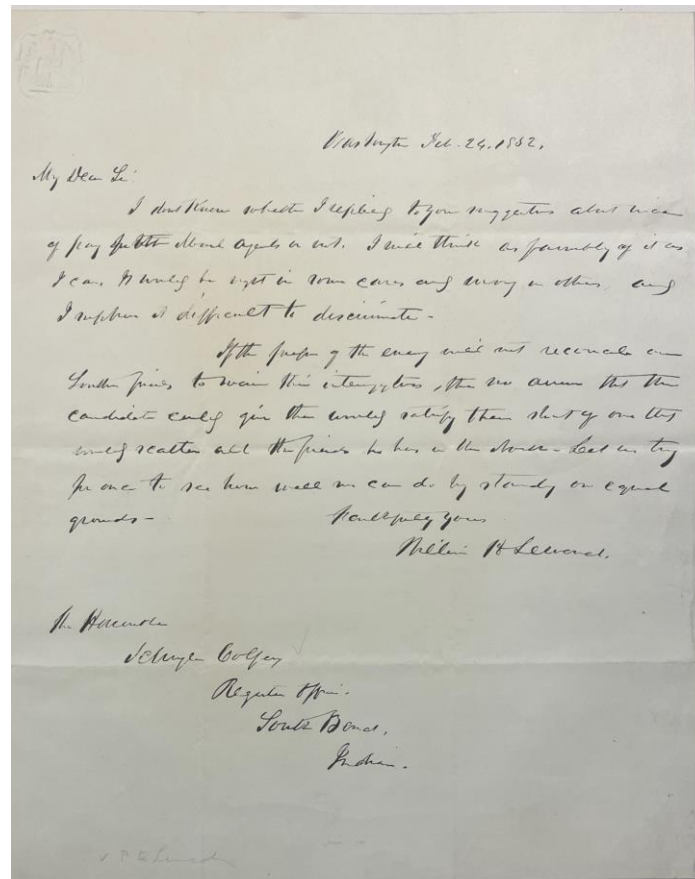 Washington Feb. 24. 1852.
My Dear Sir
I dont know whether I replied to your suggestion about
of pay for the Agents or not. I will think as favorably of it as
I can. It would be right in some cases and wrong in others, and
I suppose it difficult to discriminate -
If the of the enemy will not reconcile our
Southern friends to waive this, then no answer that the
candidate could give them would satisfy them short of one that
would scatter all the friends he has in the North - Let us try
for once to see how well we can do by standing on equal
grounds -
Faithfully yours
William H Seward.
The Honorable
Schuyler Colfax
Register Office.
South Bend,
Indiana.